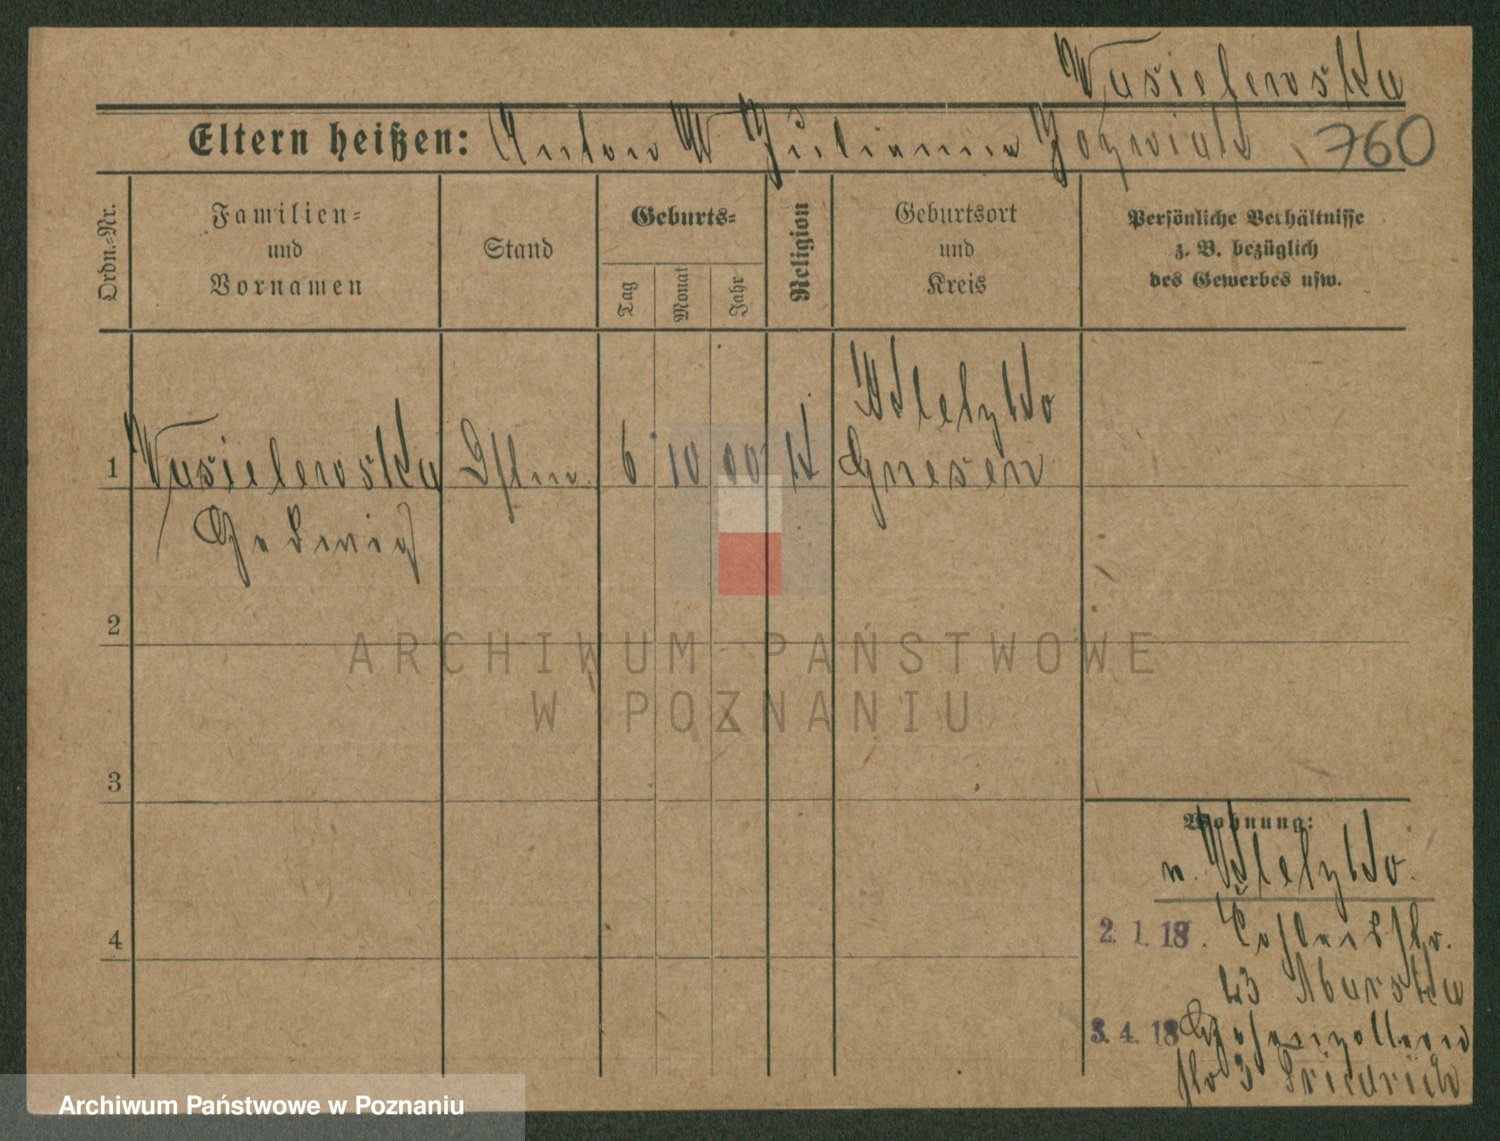 Wasielewska
Eltern heißen: Anton W Julianna Jozwiak 760
Ordn.-Nr.
Familien-
und
Vornamen
Stand
Geburts-
Tag
Monat
Jahr
Religion
Geburtsort
und
Kreis
Persönliche Verhältnisse
z. B. bezüglich
des Gewerbes usw.
1 Wasielewska 6 10 00 K Gnesen
Hedwig
2
3
4
Wohnung:
n.
2. 1. 18.
23
3. 4. 18 Hohenzollern
str 3 Friedrich
ARCHIWUM PAŃSTWOWE
W POZNANIU
Archiwum Państwowe w Poznaniu